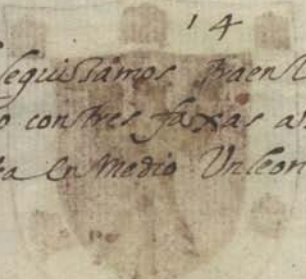 14
leguissamos traen U
o con tres faxas a
ea en medio Un leon